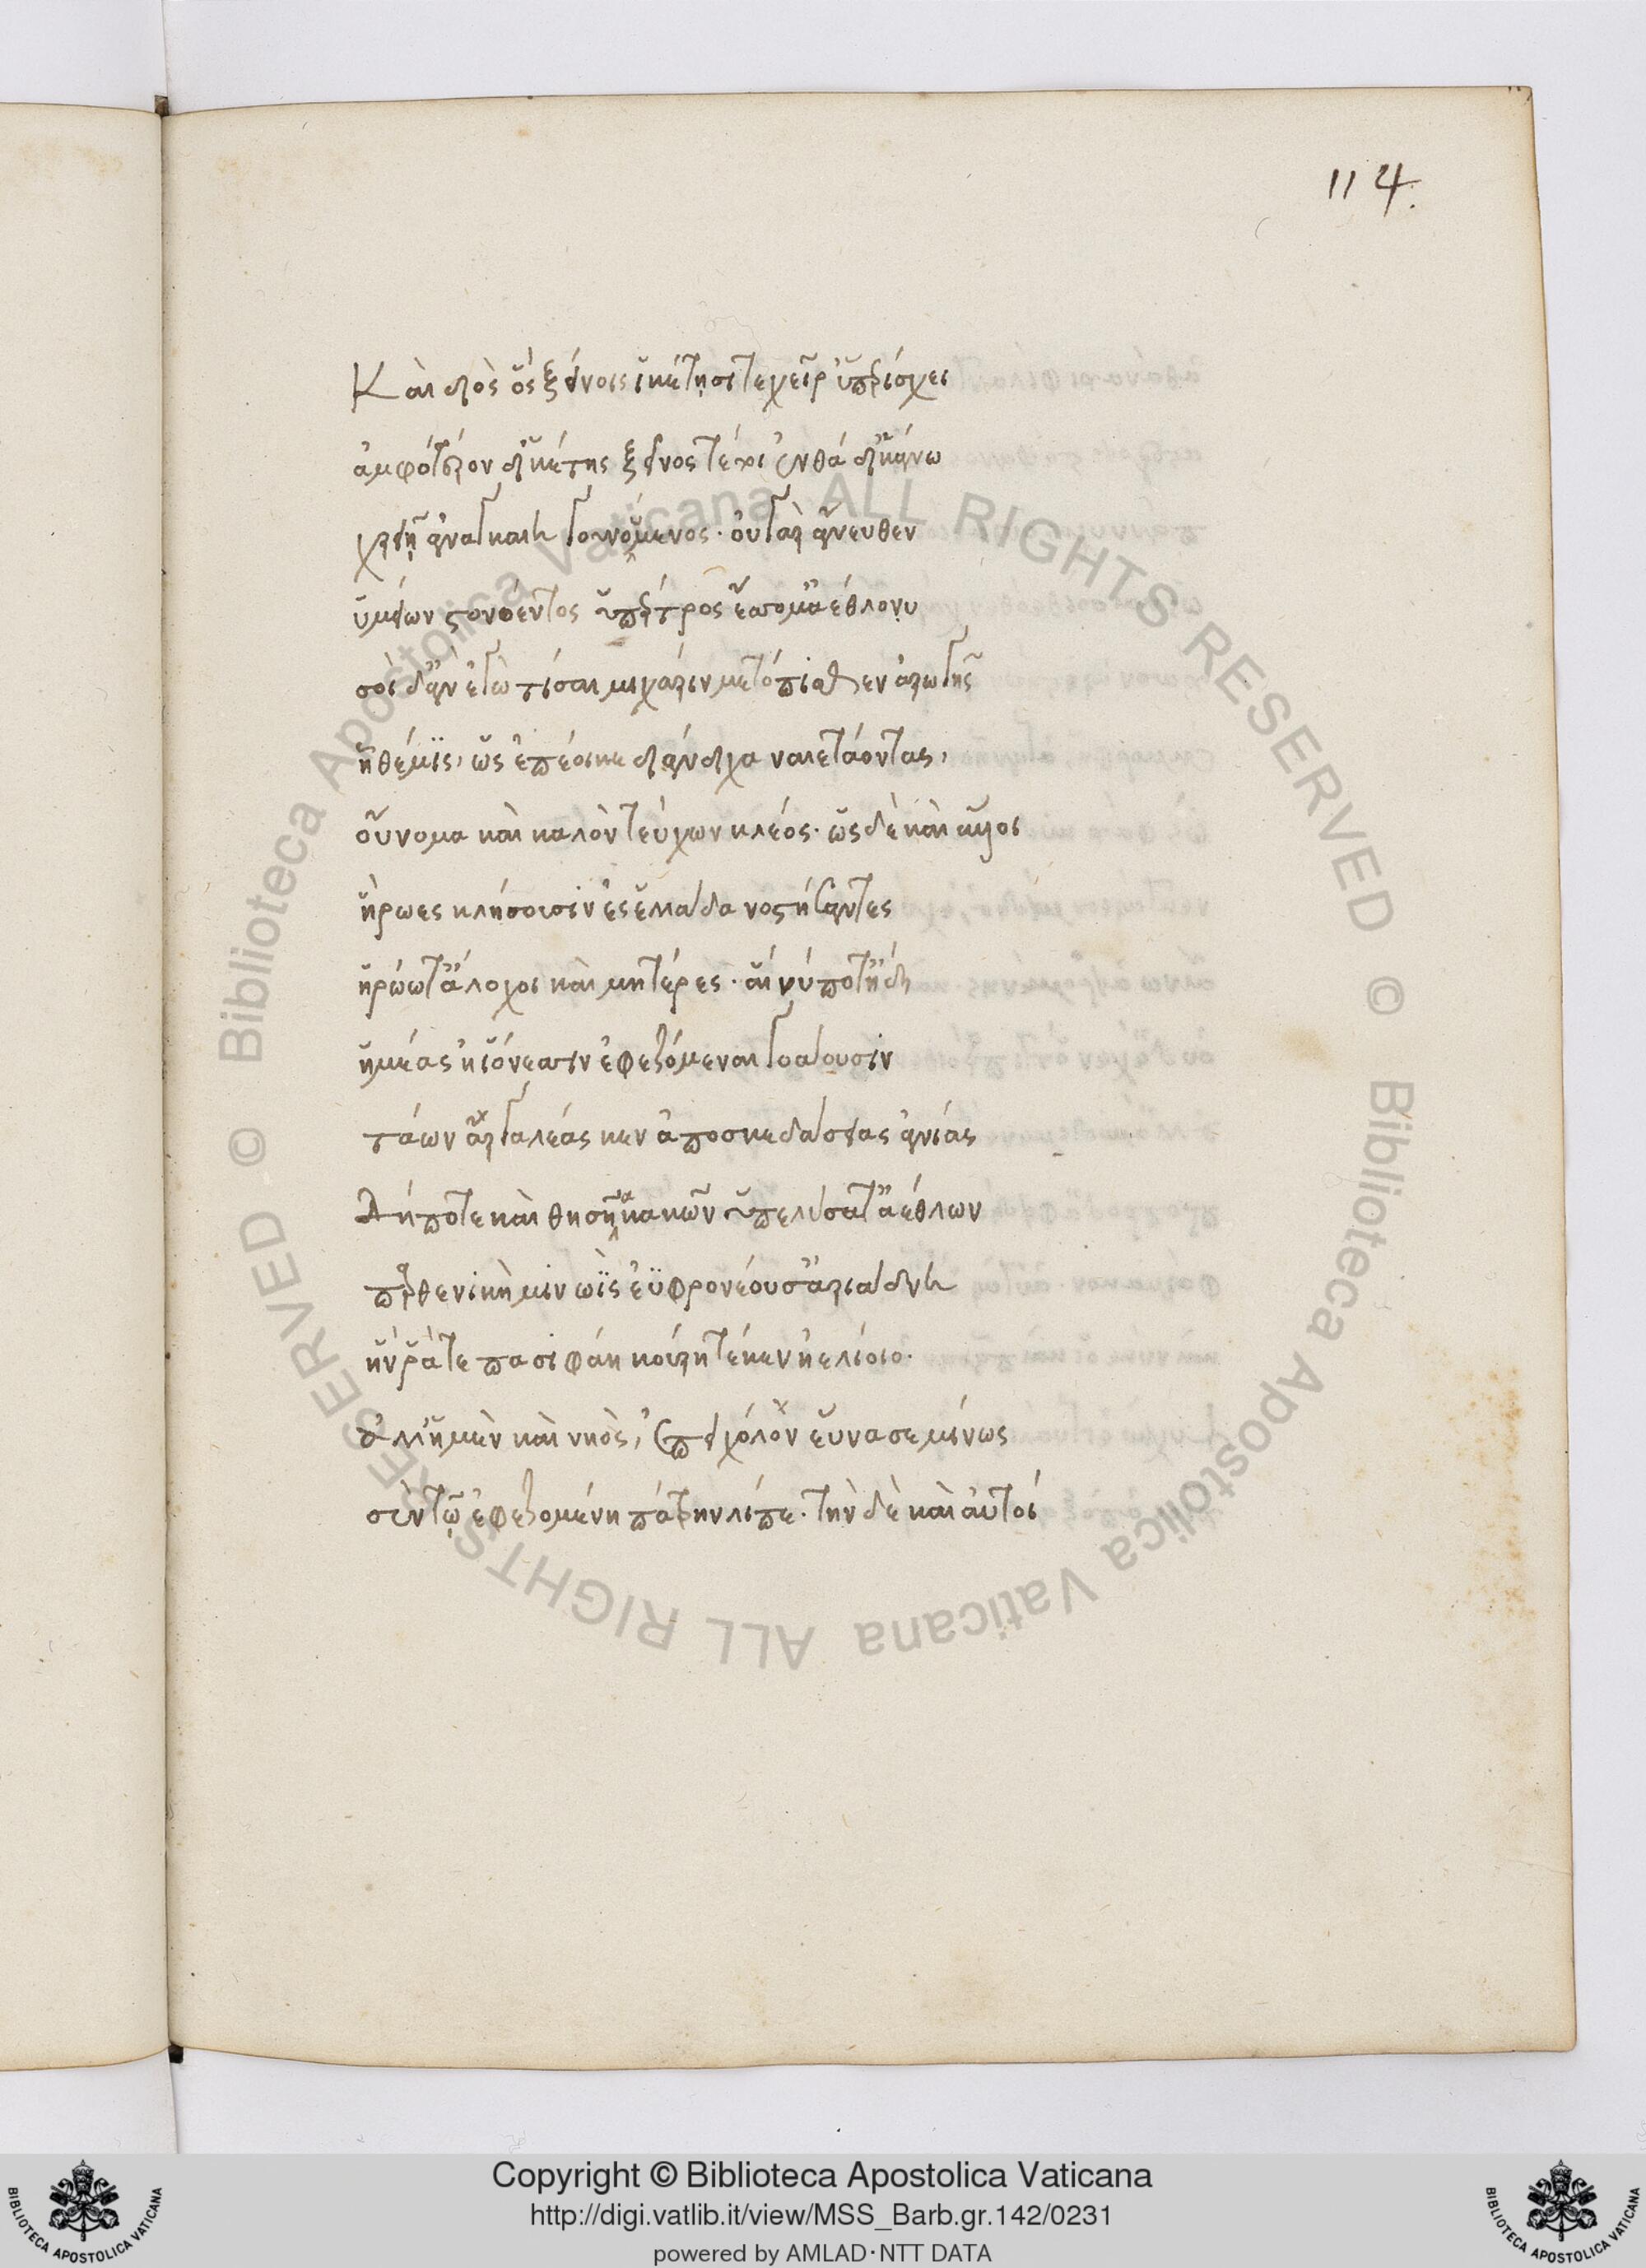 114.
Καὶ διὸς ὃς ξείνοις ἱκέτῃσι τε χεῖρ' ὑπερίσχει
ἀμφότερον δ' ἱκέτης ξεῖνός τέ τοι ἐνθάδ' ἱκάνω
χρειῇ ἀναγκαίη γουνούμενος. οὐ γὰρ ἄνευθεν
ὑμείων στονόεντος ὑπέρτερος ἔσσομ' ἀέθλου
σοὶ δ' ἂν ἐγὼ τίσαιμι χάριν μετόπισθεν ἀρωγῆς
ἣ θέμις, ὡς ἐπέοικε διάνδιχα ναιετάοντας,
οὔνομα καὶ καλὸν τεύχων κλέος. ὣς δὲ καὶ ὦλλοι
ἥρωες κλήσουσιν ἐς ἑλλάδα νοστήσαντες
ἡρώων τ' ἄλοχοι καὶ μητέρες. αἵ νύ ποτ' ἤδη
ἡμέας ἠιόνεσσιν ἐφεζόμεναι γοάουσιν
τάων ἀργαλέας κεν ἀποσκεδάσειας ἀνίας
Δήποτε καὶ θησῆα κακῶν ὑπελύσατ' ἀέθλων
παρθενικὴ μινωῒς ἐϋφρονέουσ' ἀριάδνη
ἥν ῥά τε πασιφάη κούρη τέκεν ἠελίοιο.
ἀλλ' ἡ μὲν καὶ νηὸς, ἐπεὶ χόλον εὔνασε μίνως
σὺν τῷ ἐφεζομένη πάτρην λίπε. τὴν δὲ καὶ αὐτοί
Copyright © Biblioteca Apostolica Vaticana
http://digi.vatlib.it/view/MSS_Barb.gr.142/0231
powered by AMLAD·NTT DATA
BIBLIOTECA APOSTOLICA VATICANA
BIBLIOTECA APOSTOLICA VATICANA
© Biblioteca Apostolica Vaticana ALL RIGHTS RESERVED
© Biblioteca Apostolica Vaticana ALL RIGHTS RESERVED